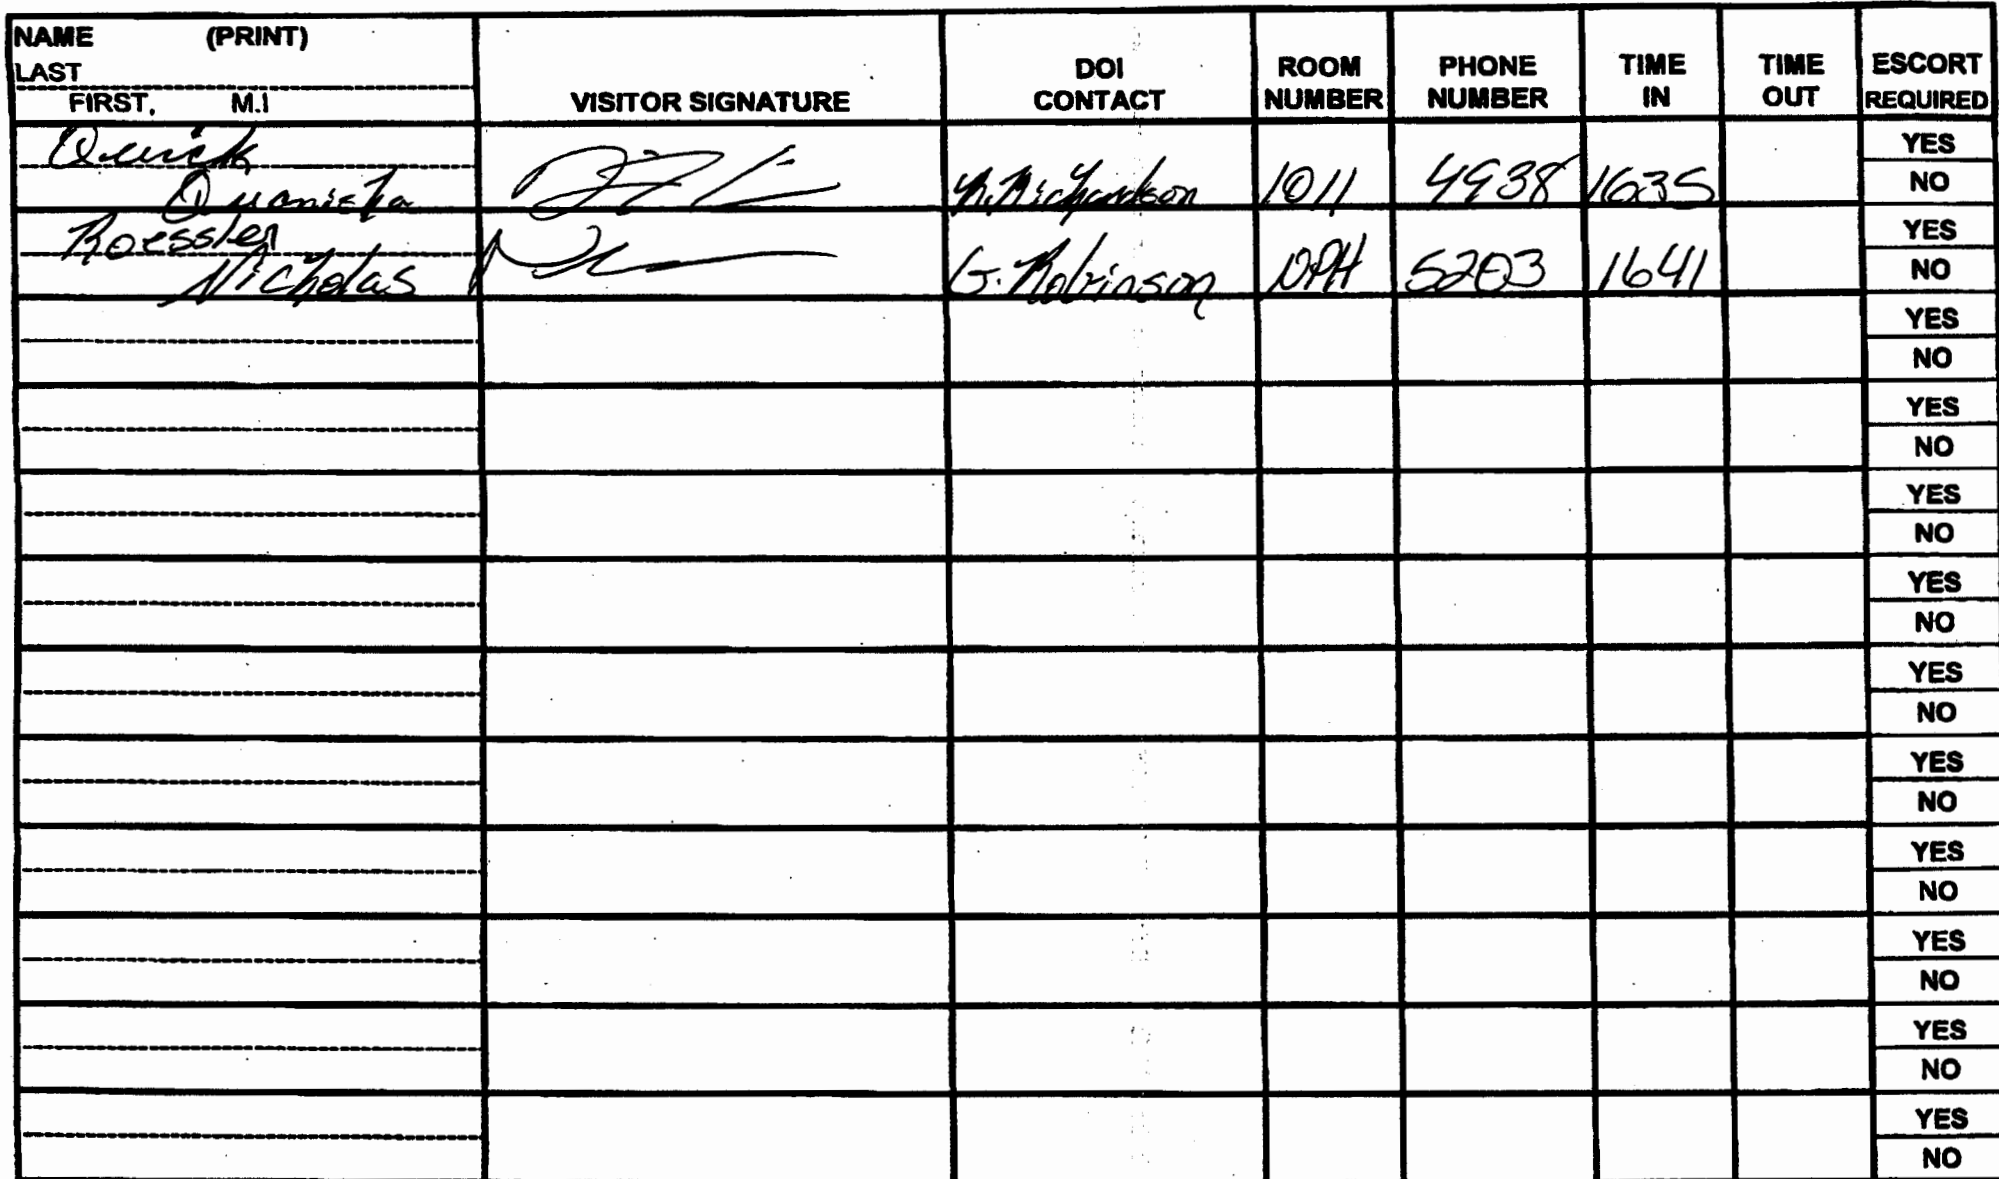 NAME (PRINT)
LAST
FIRST, M.I
VISITOR SIGNATURE
DOI
CONTACT
ROOM
NUMBER
PHONE
NUMBER
TIME
IN
TIME
OUT
ESCORT
REQUIRED
Quick
Quanisha
Richardson 1011 4938 1635
YES
NO
Roessler
Nicholas
G. Robinson DPH 5203 1641
YES
NO
YES
NO
YES
NO
YES
NO
YES
NO
YES
NO
YES
NO
YES
NO
YES
NO
YES
NO
YES
NO